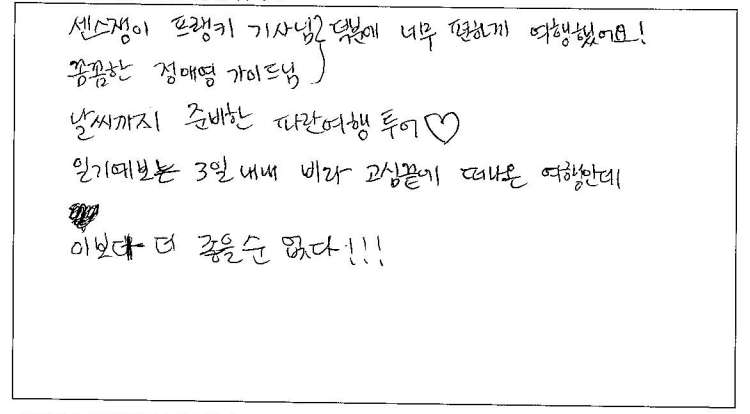 센스쟁이 프랭키 기사님 덕분에 너무 편하게 여행했어요!
꼼꼼한 정애영 가이드님
날씨까지 준비한 파란여행 투어♡
일기예보는 3일 내내 비라 고심끝에 떠나온 여행인데
이보다 더 좋을순 없다!!!